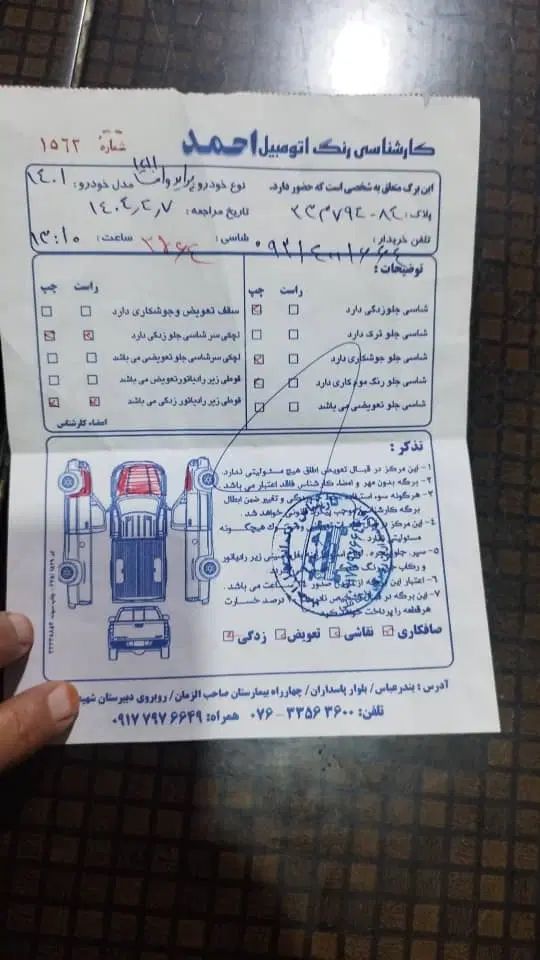 کارشناسی رنگ اتومبیل احمد
شماره: ۱۵۶۲
این برگ متعلق به شخصی است که حضور دارد. نوع خودرو: مدل خودرو: ۱۴۰۱
پلاک: ۸۴-۳۳۷۹۴ تاریخ مراجعه: ۱۴۰۴,۴,۷
تلفن خریدار: شاسی: ساعت: ۱۳:۱۰
توضیحات:
راست چپ
شاسی جلو زدگی دارد
شاسی جلو ترک دارد
شاسی جلو جوشکاری دارد
شاسی جلو رنگ موم کاری دارد
شاسی جلو تعویضی می باشد
راست چپ
سقف تعویض و جوشکاری دارد
لچکی سر شاسی جلو زدگی دارد
لچکی سرشاسی جلو تعویضی می باشد
قوطی زیر رادیاتور تعویض می باشد
قوطی زیر رادیاتور زدگی می باشد
امضاء کارشناس
تذکر:
۱- این مرکز در قبال تعویض اطاق هیچ مسئولیتی ندارد.
۲- برگه بدون مهر و امضاء کارشناس فاقد اعتبار می باشد
۳- هرگونه سوء و تغییر ضمن ابطال
برگه کارشناسی موجب پیگرد قانونی خواهد شد.
۴- این مرکز در هیچگونه
مسئولیتی ندارد.
۵- سپر، جلو زیر رادیاتور
و رکاب رنگ
۶- اعتبار این برگه از ساعت می باشد.
۷- این برگه درصد خسارت
هر قطعه را پرداخت
صافکاری نقاشی تعویض زدگی
آدرس: بندرعباس/ بلوار پاسداران/ چهارراه بیمارستان صاحب الزمان/ روبروی دبیرستان شهید
تلفن: ۳۳۵۶۳۶۰۰-۰۷۶ همراه: ۰۹۱۷۷۹۷۶۶۴۹